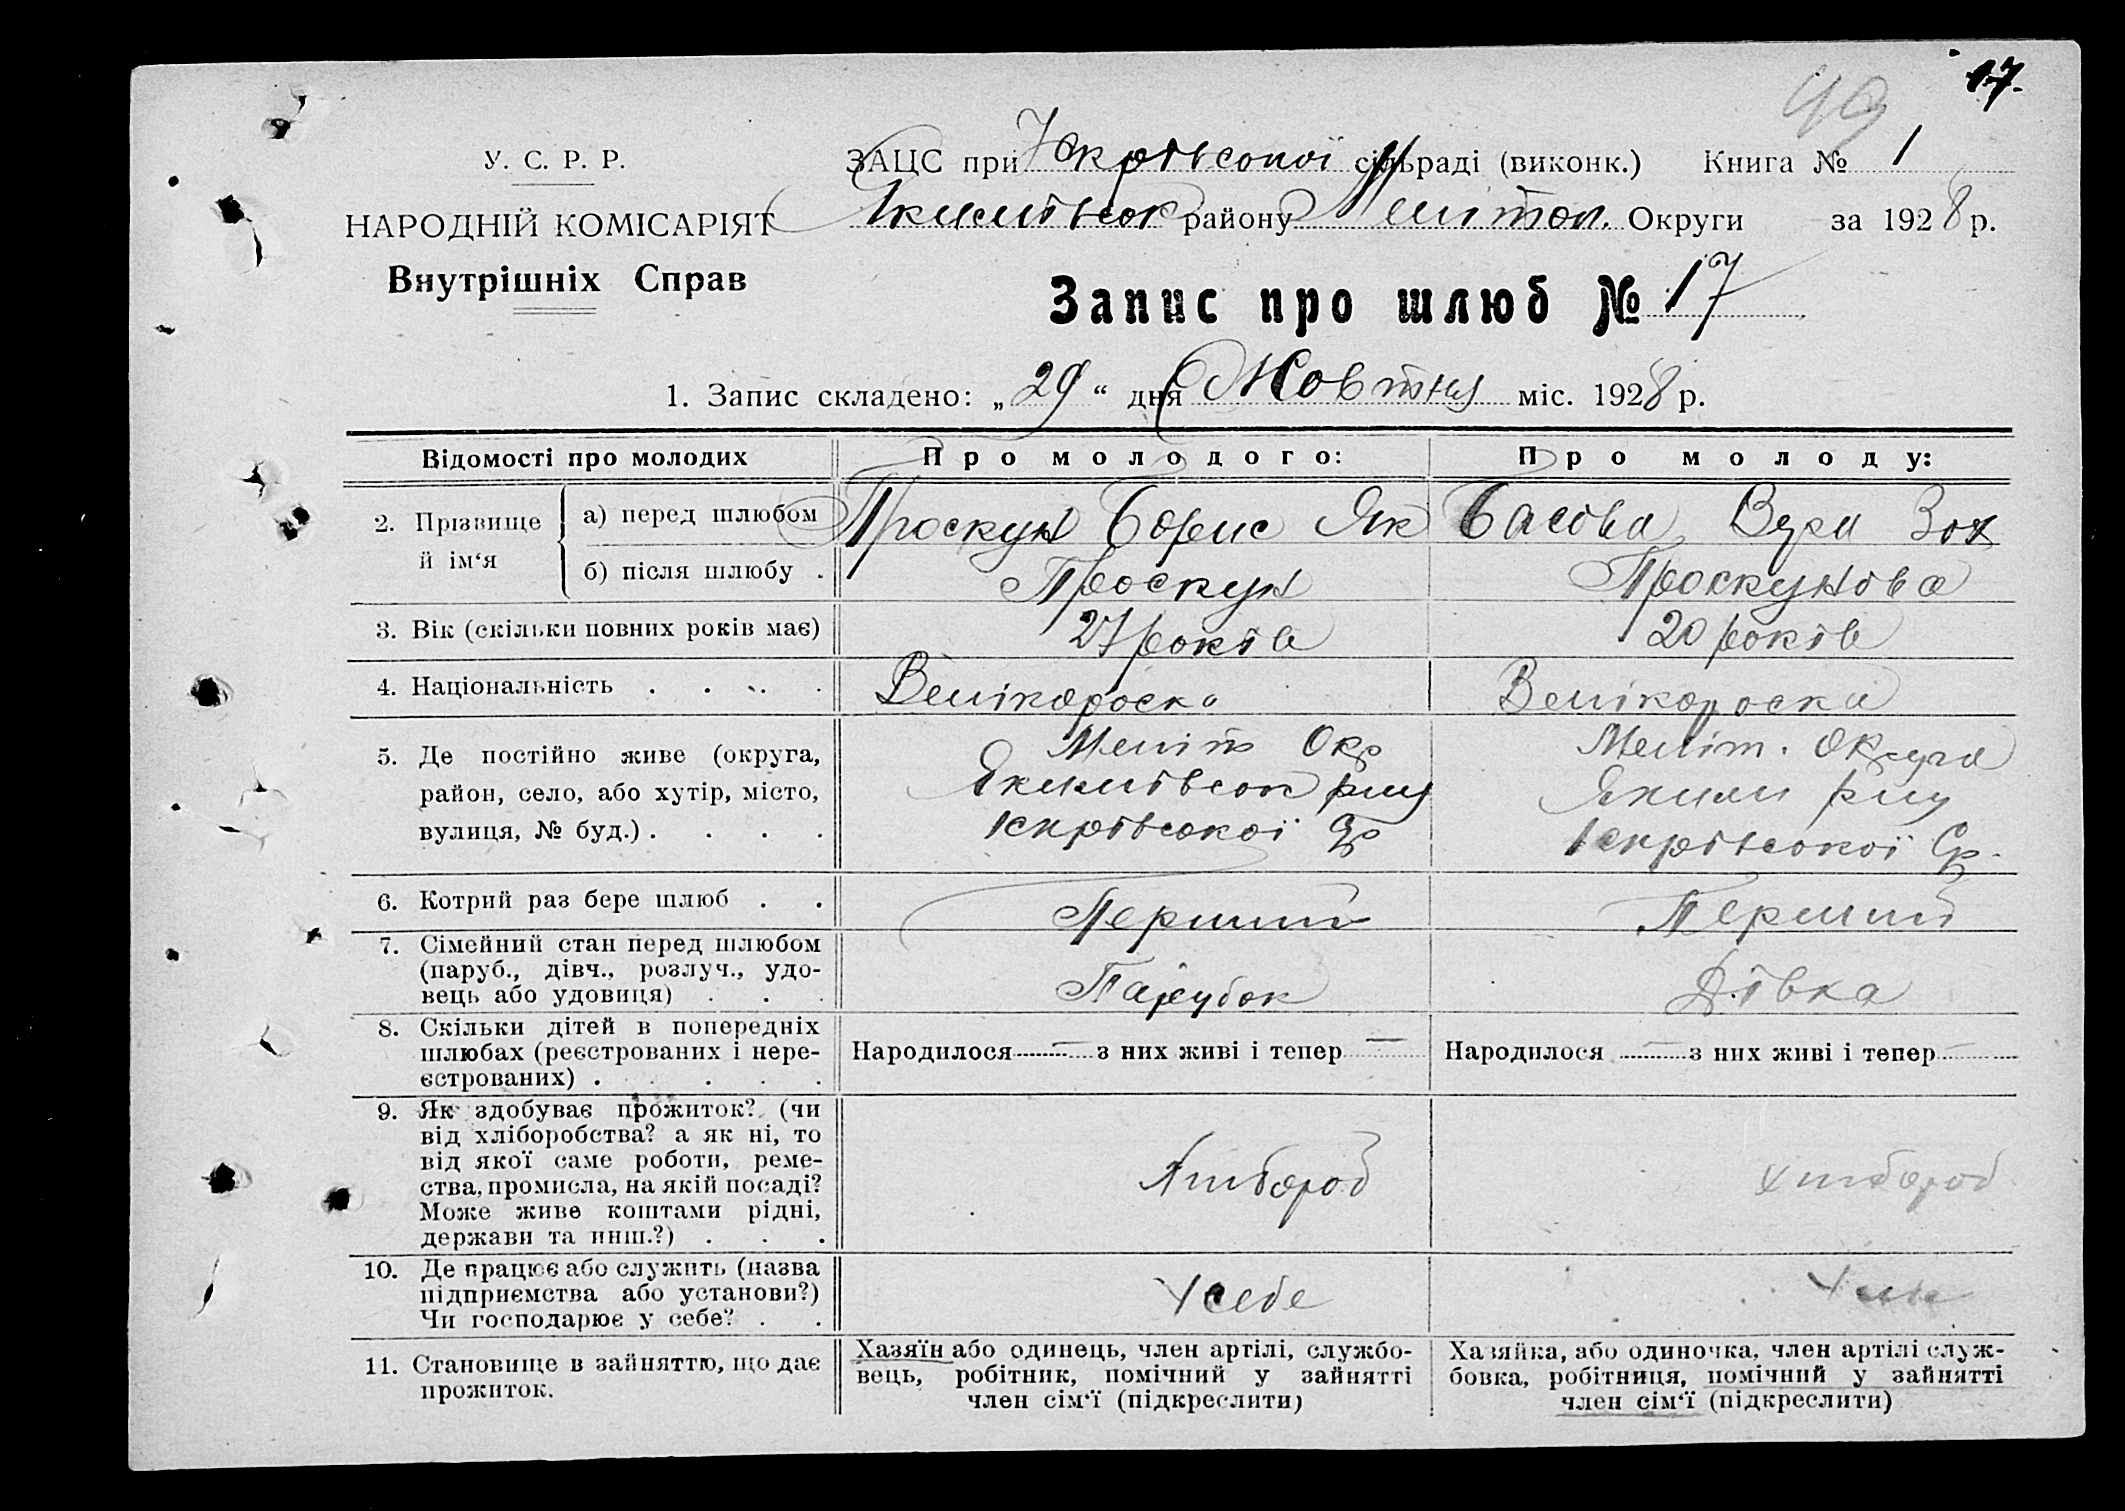 49 17.
У. С. Р. Р.
НАРОДНІЙ КОМІСАРІЯТ
Внутрішніх Справ
ЗАЦС при сільраді (виконк.) Книга № 1
Якимівськ району Мелітоп. Округи за 1928 р.
Запис про шлюб № 17
1. Запис складено: „29“ дня Жовтня міс. 1928 р.
Відомості про молодих
Про молодого:
Про молоду:
2. Прізвище й ім‘я
а) перед шлюбом
Проскун Борис Як
Басова Вера Зох
б) після шлюбу .
Проскун
Проскунова
3. Вік (скільки повних років має)
27 років
20 років
4. Національність . . . .
Велікороска
Велікороска
5. Де постійно живе (округа,
район, село, або хутір, місто,
вулиця, № буд.) . . . .
Меліт Окр
Якимівськ рну
Меліт. Округа
Якими рну
Ср.
6. Котрий раз бере шлюб . .
Перший
Перший
7. Сімейний стан перед шлюбом
(паруб., дівч., розлуч., удо-
вець або удовиця) . . .
Парубок
Дівка
8. Скільки дітей в попередніх
шлюбах (реєстрованих і нере-
єстрованих) . . . . .
Народилося — з них живі і тепер —
Народилося — з них живі і тепер —
9. Як здобуває прожиток? (чи
від хліборобства? а як ні, то
від якої саме роботи, реме-
ства, промисла, на якій посаді?
Може живе коштами рідні,
держави та инш.?) . . .
Хлібороб
Хлібороб
10. Де працює або служить (назва
підприємства або установи?)
Чи господарює у себе? . .
У себе
11. Становище в зайняттю, що дає
прожиток.
Хазяїн або одинець, член артілі, службо-
вець, робітник, помічний у зайнятті
член сім‘ї (підкреслити)
Хазяйка, або одиночка, член артілі служ-
бовка, робітниця, помічний у зайнятті
член сім‘ї (підкреслити)